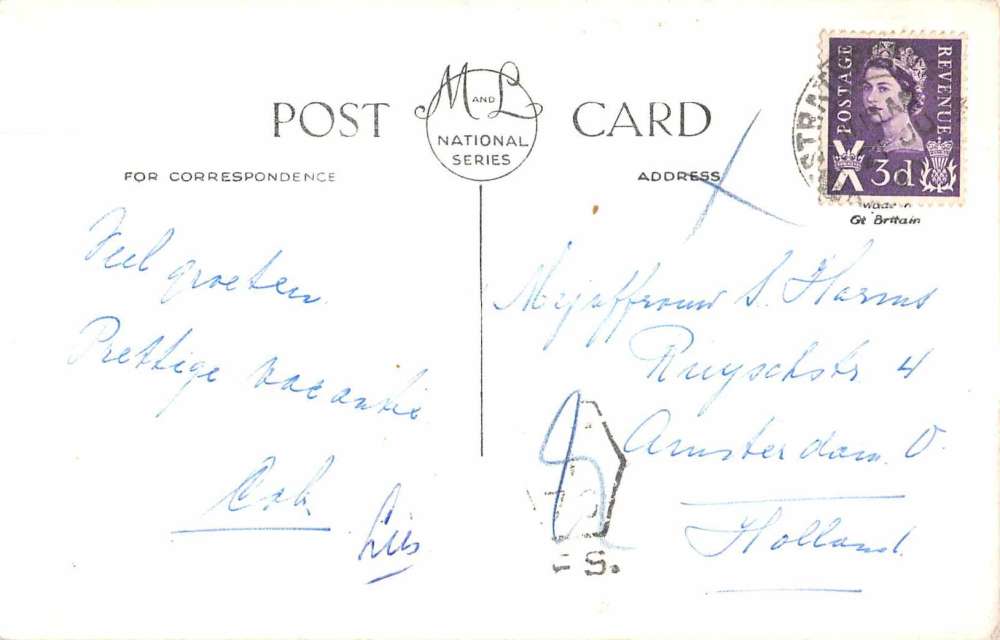 POST CARD
M AND L
NATIONAL
SERIES
FOR CORRESPONDENCE
ADDRESS
POSTAGE
REVENUE
3d
Made in
Gt Britain
Veel groeten
Prettige vacantie
Lies
Mejuffrouw S. Harms
Ruyschstr 4
Amsterdam O.
Holland.
S.